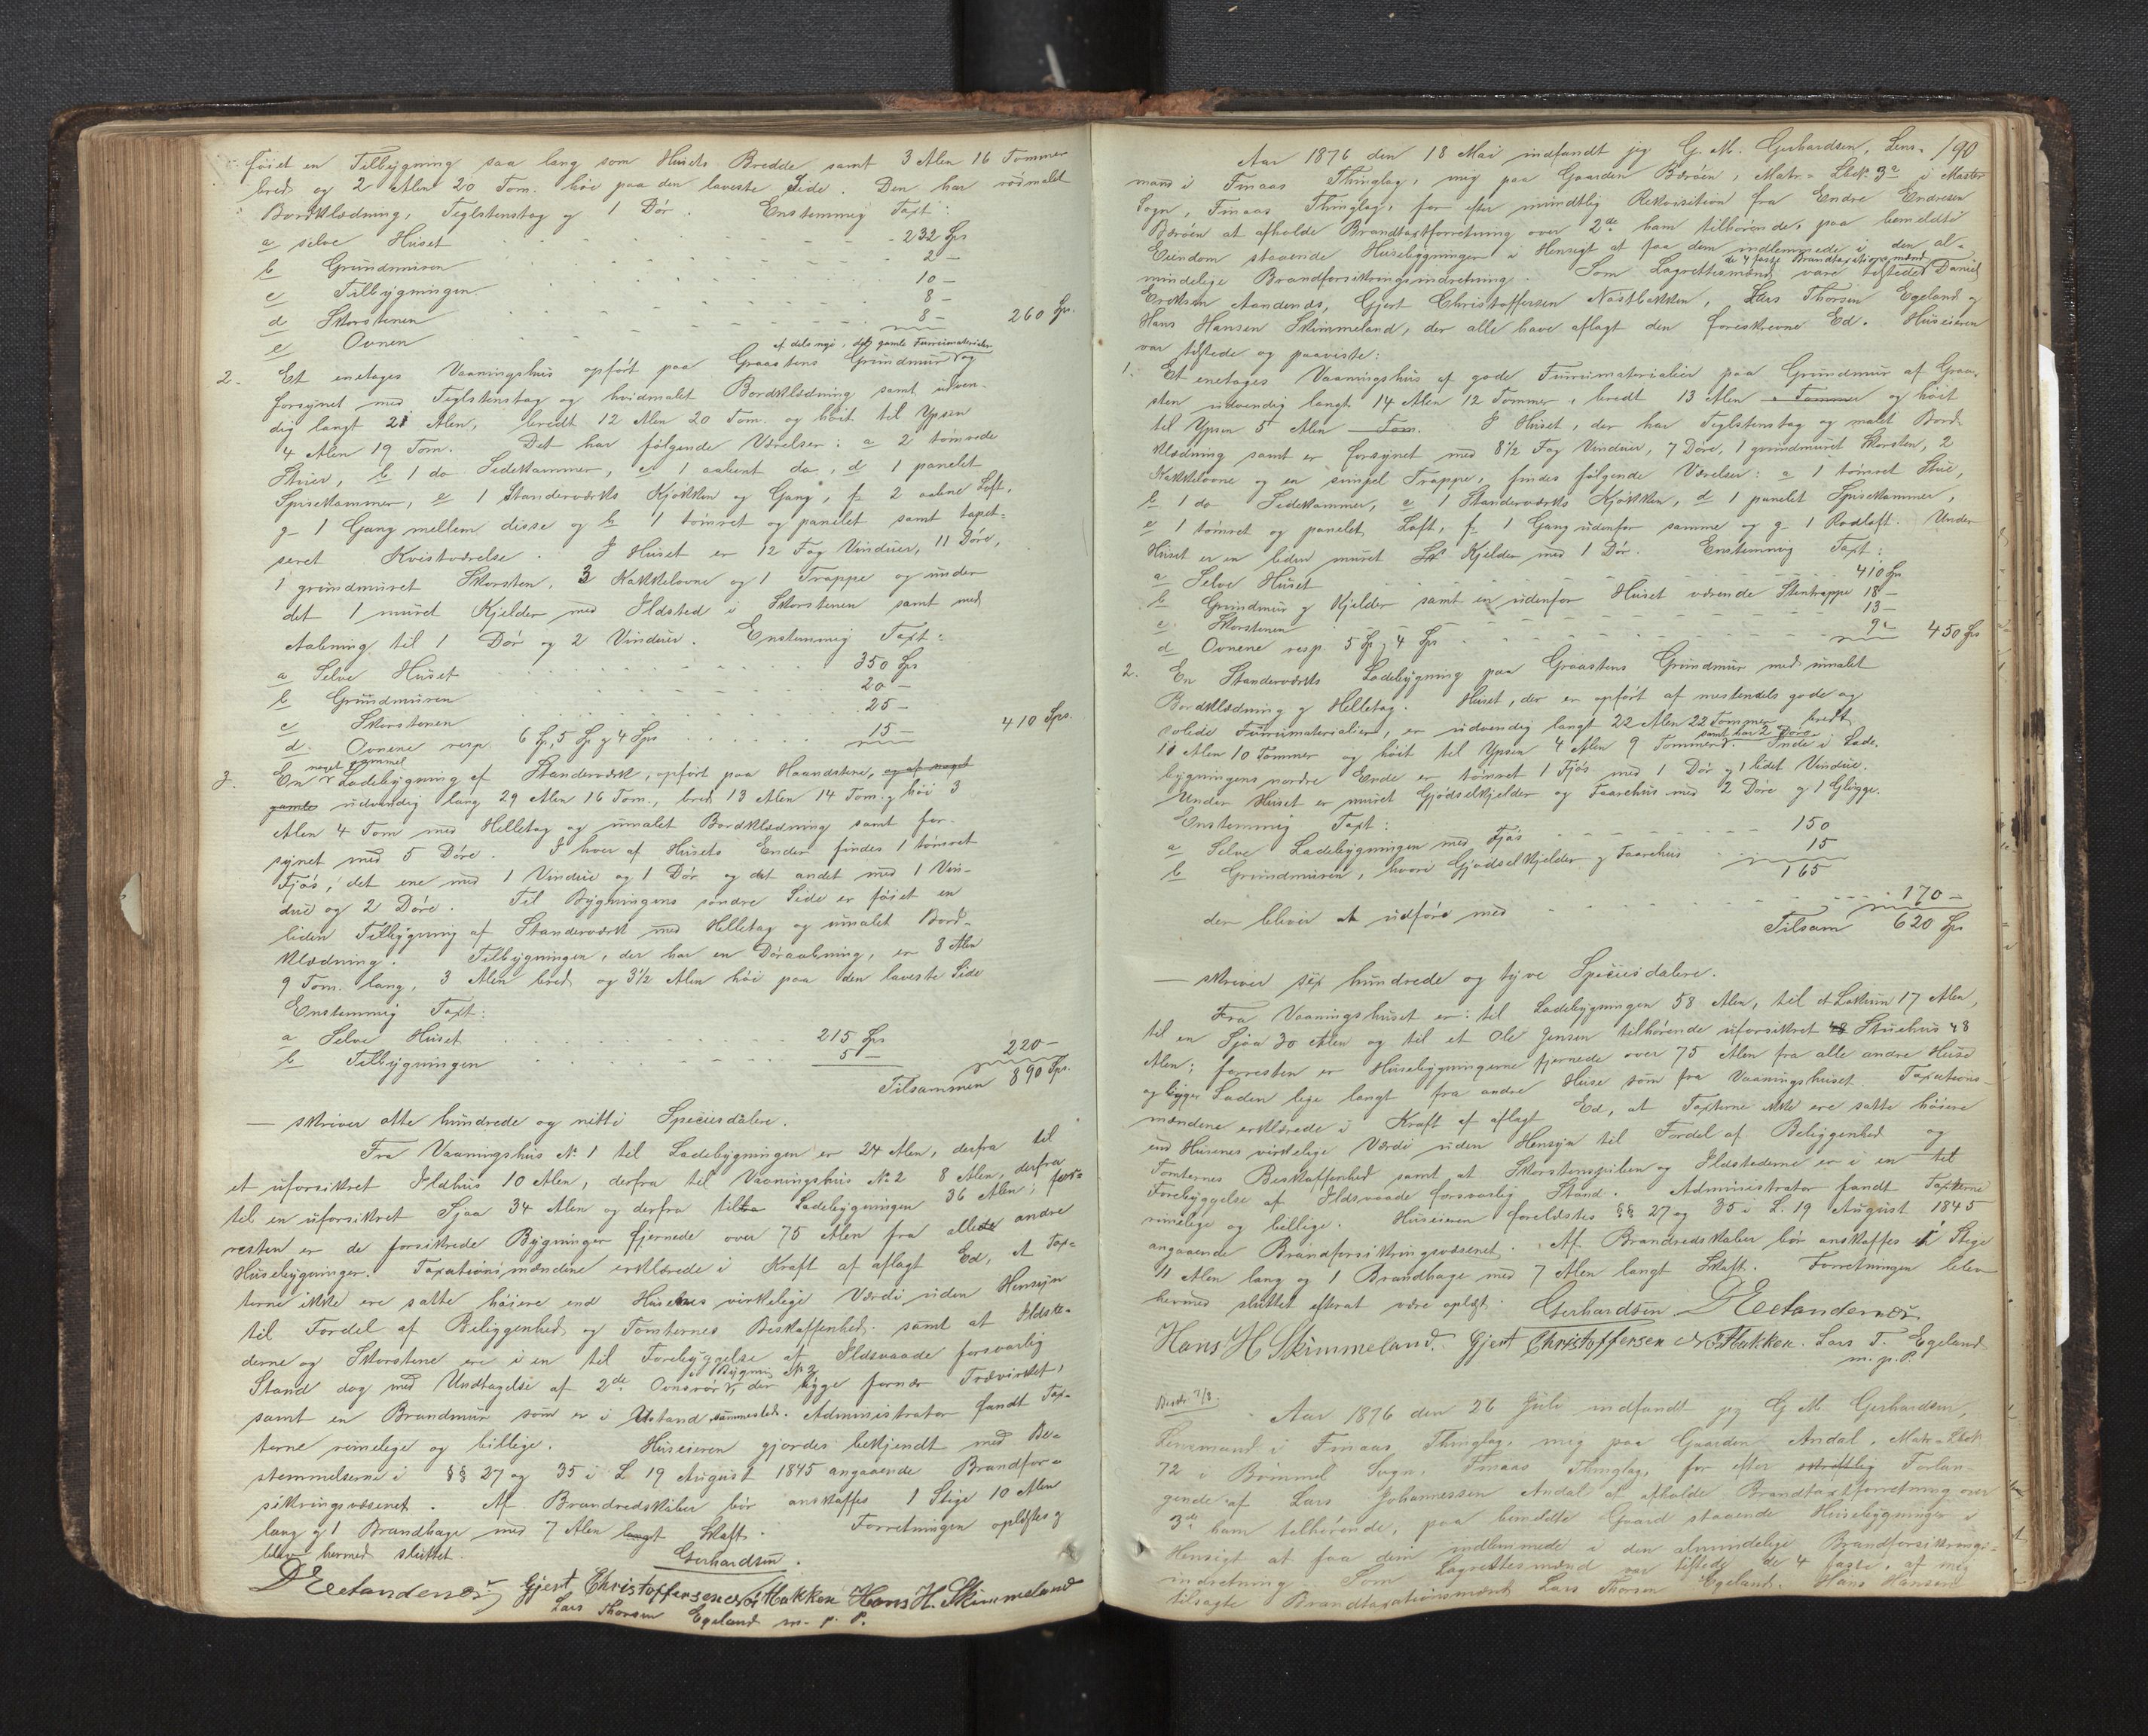 føiet en Tilbygning saa lang som Husets Bredde samt 3 Alen 16 Tommer
bred og 2 Alen 20 Tom. høi paa den laveste Side. Den har rødmalet
Bordklædning, Teglstenstag og 1 Dør. Enstemmig Taxt:
a selve Huset - - - 232 Sps
b Grundmuren - - - 2 -
c Tilbygningen - - - 10 -
d Skorstenen - - - 8 -
e Ovnen - - - 8 - 260 Sps.
af dels nye, dels gamle Furrumaterialier
2. Et enetages Vaaningshus opført paa Graastens Grundmur og
forsynet med Teglstenstag og hvidmalet Bordklædning samt udven-
dig langt 21 Alen, bredt 12 Alen 20 Tom. og høit til Ypsen
4 Alen 19 Tom. Det har følgende Værelser: a 2 tømrede
Stuer, b 1 do Sidekammer, c 1 aabent do, d 1 panelet
Spisekammer, e 1 Standerværks Kjøkken og Gang, f 2 aabne Loft,
g 1 Gang mellem disse og h 1 tømret og panelet samt tapet-
seret Kvistværelse. I Huset er 12 Fag Vinduer, 11 Døre,
1 grundmuret Skorsten, 3 Kakkelovne og 1 Trappe og under
det 1 muret Kjelder med Ildsted i Skorstenen samt med
Aabning til 1 Dør og 2 Vinduer. Enstemmig Taxt:
a Selve Huset - - - 350 Sps
b Grundmuren - - - 20 -
c Skorstenen - - - 25 -
d. Ovnene resp. 6 Sp, 5 Sp og 4 Sps - - - 15 - 410 Sps.
noget gammel
3. En Ladebygning af Standerværk, opført paa Haandstene, og af noget
gamle udvendig lang 29 Alen 16 Tom., bred 13 Alen 14 Tom. og høi 3
Alen 4 Tom med Helletag og umalet Bordklædning samt for-
synet med 5 Døre. I hver af Husets Ender findes 1 tømret
Fjøs, det ene med 1 Vindue og 1 Dør og det andet med 1 Vin-
due og 2 Døre. Til Bygningens søndre Side er føiet en
liden Tilbygning af Standerværk med Helletag og umalet Bord-
klædning. Tilbygningen, der har en Døraabning, er 8 Alen
9 Tom. lang, 3 Alen bred og 3½ Alen høi paa den laveste Side
Enstemmig Taxt:
a Selve Huset - - - 215 Sps
b Tilbygningen - - - 5 - 220 -
Tilsammen 890 Sps.
— skriver otte hundrede og nitti Speciesdalere.
Fra Vaaningshus No 1 til Ladebygningen er 24 Alen, derfra til
et uforsikret Ildhus 10 Alen, derfra til Vaaningshus No 2 8 Alen, derfra
til en uforsikret Sjaa 34 Alen og derfra til Ladebygningen 36 Alen; for-
resten er de forsikrede Bygninger fjernede over 75 Alen fra alle andre
Husebygninger. Taxationsmændene erklærede i Kraft af aflagt Ed, at Tax-
terne ikke ere satte høiere end Husenes virkelige Værdi uden Hensyn
til Fordel af Beliggenhed og Tomternes Beskaffenhed samt at Ildste-
derne og Skorstene ere i en til Forebyggelse af Ildsvaade forsvarlig
i Bygning No 2
Stand dog med Undtagelse af 2de Ovnsrør der ligge fornær Trævirket,
samt en Brandmur som er i Ustand sammesteds. Administrator fandt Tax-
terne rimelige og billige. Huseieren gjordes bekjendt med Be-
stemmelserne i §§ 27 og 35 i L 19 August 1845 angaaende Brandfor-
sikringsvæsenet. Af Brandredskaber bør anskaffes 1 Stige 10 Alen
lang og 1 Brandhage med 7 Alen langt Skaft. Forretningen oplæstes og
blev hermed sluttet.
Gerhardsen.
Gjert Christoffersen Hans H. Skimmeland
Lars Thorsen Egeland m. p. P.
190
Aar 1876 den 18 Mai indfandt jeg G. M. Gerhardsen, Lens-
mand i Finaas Thinglag, mig paa Gaarden Børøen, Matr.- Løb. 3a i Møster
Sogn, Finaas Thinglag, for efter mundtlig Rekvisition fra Endre Endresen
Børøen at afholde Brandtaxtforretning over 2de ham tilhørende, paa bemeldte
Eiendom staaende Husebygninger i Hensigt at faa dem indlemmede i den al-
de 4 faste Brandtaxationsmænd
mindelige Brandforsikringsindretning. Som Lagrettesmænd vare tilstede Daniel
Eriksen Aandenes, Gjert Christoffersen Nøstbakken, Lars Thorsen Egeland og
Hans Hansen Skimmeland, der alle have aflagt den foreskrevne Ed. Huseieren
var tilstede og paaviste:
1. Et enetages Vaaningshus af gode Furrumaterialier paa Grundmur af Graa-
sten udvendig langt 14 Alen 12 Tommer, bredt 13 Alen Tommer og høit
til Ypsen 5 Alen Tom. I Huset, der har Teglstenstag og malet Bord-
klædning samt er forsynet med 8½ Fag Vinduer, 7 Døre, 1 grundmuret Skorsten, 2
Kakkelovne og en simpel Trappe, findes følgende Værelser: a 1 tømret Stue,
b 1 do Sidekammer, c 1 Standerværks Kjøkken, d 1 panelet Spisekammer,
e 1 tømret og panelet Loft, f 1 Gang udenfor samme og g 1 Rødloft. Under
Huset er en liden muret Kjelder med 1 Dør. Enstemmig Taxt:
a Selve Huset - - - 410 Sps
b Grundmur og Kjelder samt en udenfor Huset værende Stentrappe 18 -
c. Skorstenen - - - 13 -
d Ovnene resp. 5 Sp og 4 Sps - - - 9 - 450 Sps
2. En Standerværks Ladebygning paa Graastens Grundmur med umalet
Bordklædning og Helletag. Huset, der er opført af mestendels gode og
solide Furrumaterialier, er udvendig langt 22 Alen 22 Tommer, bredt
samt har 2 Døre
11 Alen 10 Tommer og høit til Ypsen 4 Alen 9 Tommer. Inde i Lade-
bygningens nordre Ende er tømret 1 Fjøs med 1 Dør og 1 lidet Vindue.
Under Huset er muret Gjødselkjelder og Faarehus med 2 Døre og 1 Glugge.
Enstemmig Taxt:
a Selve Ladebygningen med Fjøs - - - 150
b Grundmuren, hvori Gjødselkjelder og Faarehus - - - 15
165
der bliver at udføre med - - - 170 -
Tilsam 620 Sps
— skriver sex hundrede og tyve Speciesdalere.
Fra Vaaningshuset er: til Ladebygningen 58 Alen, til et Lokum 17 Alen,
til en Sjaa 30 Alen og til et Ole Jensen tilhørende uforsikret 48 Stuehus 48
Alen; forresten er Husebygningerne fjernede over 75 Alen fra alle andre Huse
og ligger Laden lige langt fra andre Huse som fra Vaaningshuset. Taxations-
mændene erklærede i Kraft af aflagt Ed, at Taxterne ikke ere satte høiere
end Husenes virkelige Værdi uden Hensyn til Fordel af Beliggenhed og
Tomternes Beskaffenhed samt at Skorstenspiben og Ildstederne er i en til
Forebyggelse af Ildsvaade forsvarlig Stand. Administrator fandt Taxterne
rimelige og billige. Huseieren forelæstes §§ 27 og 35 i L. 19 August 1845
angaaende Brandforsikringsvæsenet. Af Brandredskaber bør anskaffes 1 Stige
11 Alen lang og 1 Brandhage med 7 Alen langt Skaft. Forretningen blev
hermed sluttet efterat være oplæst. Gerhardsen.
Hans H Skimmeland. Gjert Christoffersen Lars T. Egeland
m. p. P.
Aar 1876 den 26 Juli indfandt jeg G M. Gerhardsen,
Lensmand i Finaas Thinglag, mig paa Gaarden Andal, Matr.-Løb.
72 i Bømmel Sogn, Finaas Thinglag, for efter skriftlig Forlan-
gende af Lars Johannessen Andal at afholde Brandtaxtforretning over
3de ham tilhørende, paa bemeldte Gaard staaende Husebygninger i
Hensigt at faa dem indlemmede i den almindelige Brandforsikrings-
indretning. Som Lagrettesmænd var tilstede de 4 faste, af mig
tilsagte Brandtaxationsmænd Lars Thorsen Egeland, Hans Hansen